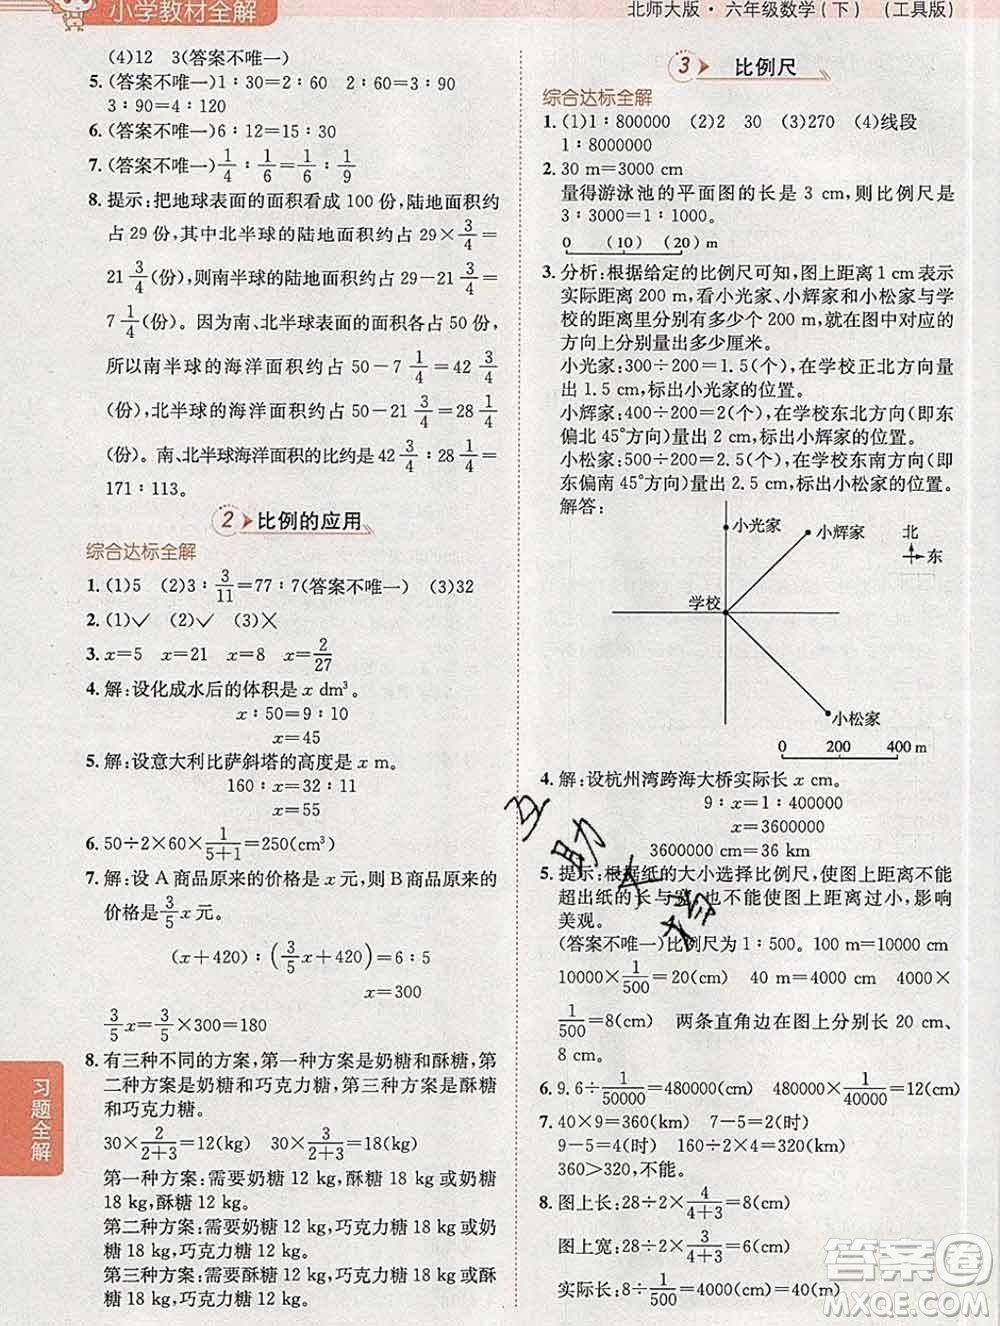 小学教材全解
北师大版·六年级数学(下) (工具版)
(4)12 3(答案不唯一)
5.(答案不唯一)1∶30=2∶60 2∶60=3∶90
3∶90=4∶120
6.(答案不唯一)6∶12=15∶30
7.(答案不唯一)1/4∶1/6=1/2∶1/3
8.提示:把地球表面的面积看成100份,陆地面积约
占29份,其中北半球的陆地面积约占29×3/4=
21 3/4(份),则南半球的陆地面积约占29-21 3/4=
7 1/4(份)。因为南、北半球表面的面积各占50份,
所以南半球的海洋面积约占50-7 1/4=42 3/4
(份),北半球的海洋面积约占50-21 3/4=28 1/4
(份)。南、北半球海洋面积的比约是42 3/4∶28 1/4=
171∶113。
2 比例的应用
综合达标全解
1.(1)5 (2)3∶3/11=77∶7(答案不唯一) (3)32
2.(1)✓ (2)✓ (3)✕
3.x=5 x=21 x=8 x=2/27
4.解:设化成水后的体积是x dm³。
x∶50=9∶10
x=45
5.解:设意大利比萨斜塔的高度是x m。
160∶x=32∶11
x=55
6.50÷2×60×1/(5+1)=250(cm³)
7.解:设A商品原来的价格是x元,则B商品原来的
价格是3/5x元。
(x+420)∶(3/5x+420)=6∶5
x=300
3/5x=3/5×300=180
8.有三种不同的方案,第一种方案是奶糖和酥糖,第
二种方案是奶糖和巧克力糖,第三种方案是酥糖
和巧克力糖。
30×2/(2+3)=12(kg) 30×3/(2+3)=18(kg)
第一种方案:需要奶糖12 kg,酥糖18 kg或奶糖
18 kg,酥糖12 kg。
第二种方案:需要奶糖12 kg,巧克力糖18 kg或奶
糖18 kg,巧克力糖12 kg。
第三种方案:需要酥糖12 kg,巧克力糖18 kg或酥
糖18 kg,巧克力糖12 kg。
习题全解
3 比例尺
综合达标全解
1.(1)1∶800000 (2)2 30 (3)270 (4)线段
1∶8000000
2.30 m=3000 cm
量得游泳池的平面图的长是3 cm,所以比例尺是
3∶3000=1∶1000。
0 (10) (20) m
3.分析:根据给定的比例尺可知,图上距离1 cm表示
实际距离200 m,看小光家、小辉家和小松家与学
校的距离里分别有多少个200 m,就在图中对应的
方向上分别量出多少厘米。
小光家:300÷200=1.5(个),在学校正北方向量
出1.5 cm,标出小光家的位置。
小辉家:400÷200=2(个),在学校东北方向(即东
偏北45°方向)量出2 cm,标出小辉家的位置。
小松家:500÷200=2.5(个),在学校东南方向(即
东偏南45°方向)量出2.5 cm,标出小松家的位置。
解答:
小光家
小辉家
北
东
学校
小松家
0 200 400 m
4.解:设杭州湾跨海大桥实际长x cm。
9∶x=1∶400000
x=3600000
3600000 cm=36 km
5.提示:根据纸的大小选择比例尺,使图上距离不能
超出纸的长与宽,也不能使图上距离过小,影响
美观。
(答案不唯一)比例尺为1∶500。100 m=10000 cm
10000×1/500=20(cm) 40 m=4000 cm 4000×
1/500=8(cm) 两条直角边在图上分别长20 cm、
8 cm。
6.9.6÷1/50000=480000(cm) 480000×1/40000=12(cm)
7.40×9=360(km) 7-5=2(时)
9-5=4(时) 160÷2×4=320(km)
360>320,不能。
8.图上长:28÷2×4/(4+3)=8(cm)
图上宽:28÷2×3/(4+3)=6(cm)
实际长:8÷1/500=4000(cm)=40(m)
答案圈
MXQE.COM